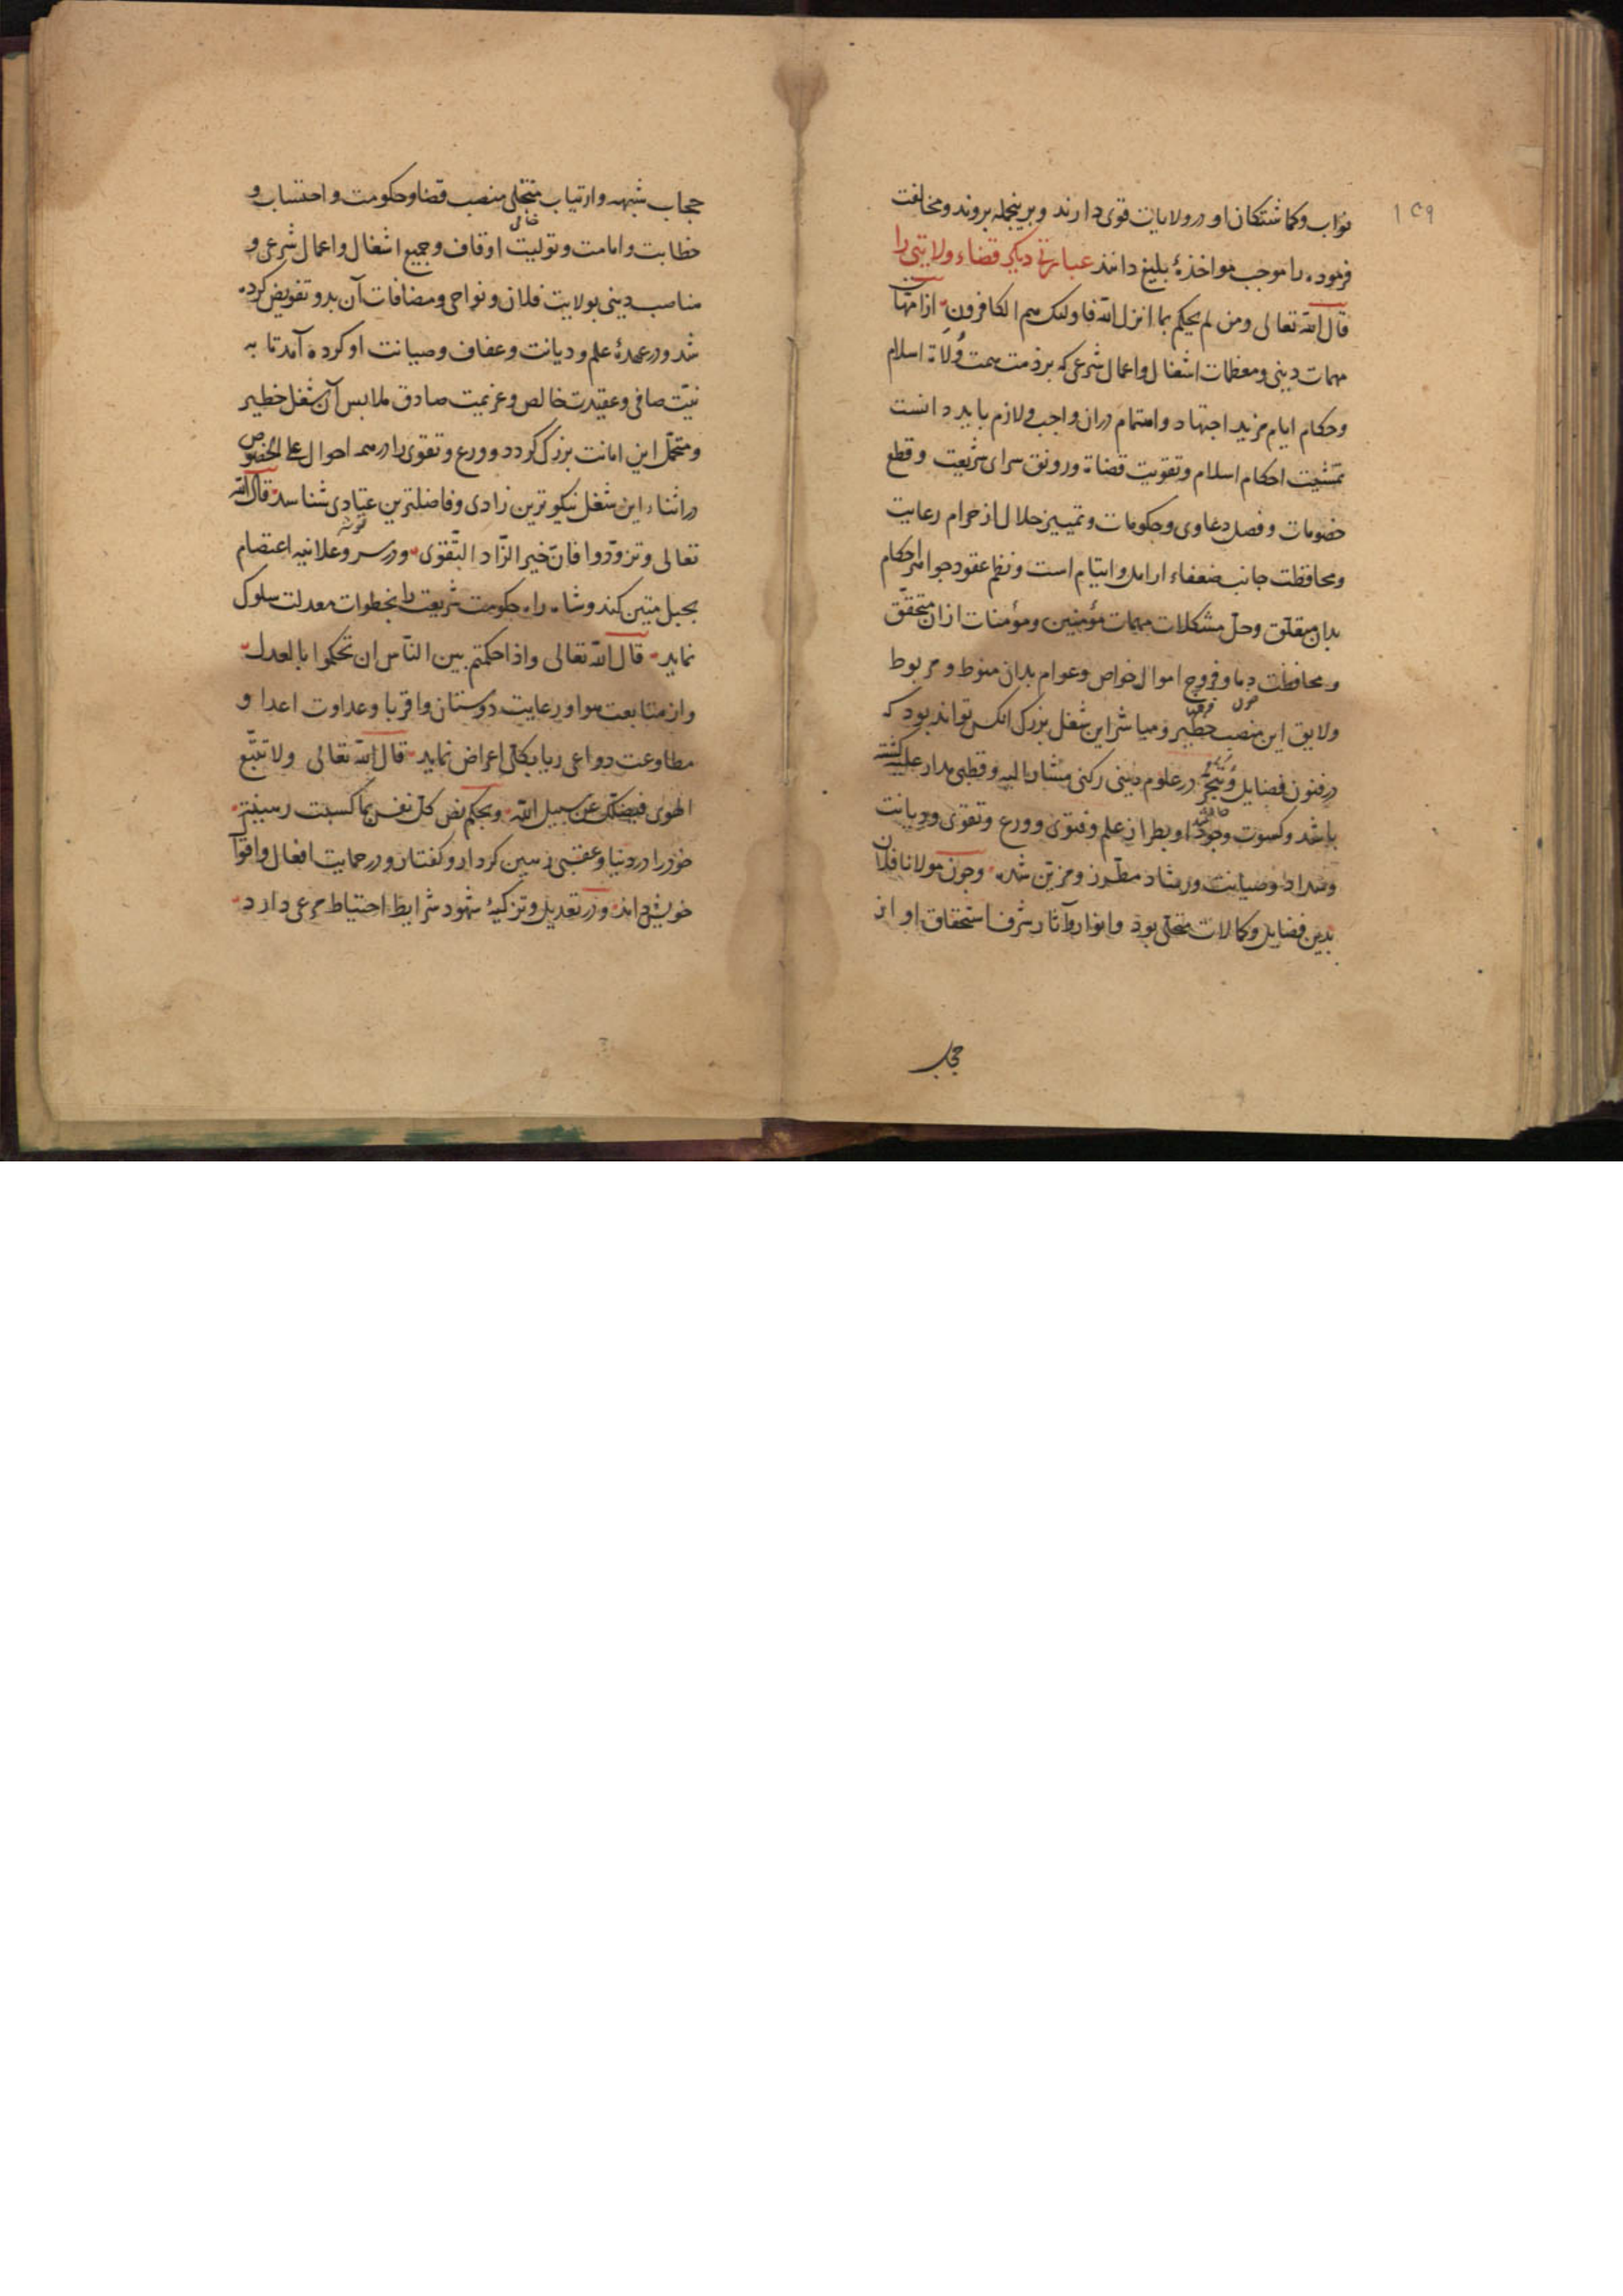 ۱۲۹
نواب و کماشتکان او در ولایات قوی دارند و برینجمله بروند و مخالفت
فرموده را موجب مواخذهٔ بلیغ دانند عبارتی دیکر قضاء ولایتی را
قال الله تعالی ومن لم یحکم بما انزل الله فاولئک هم الکافرون از امهات
مهمات دینی و معظمات اشغال و اعمال شرعی که بر ذمت همت وُلاة اسلام
و حکام ایام مزید اجتهاد و اهتمام دران واجب و لازم باید دانست
تمشیت احکام اسلام و تقویت قضاة و رونق سرای شریعت و قطع
خصومات و فصل دعاوی و حکومات و تمییز حلال از حرام رعایت
و محافظت جانب ضعفاء ارامل و ایتام است و نظم عقود جواهر احکام
بدان متعلق و حلّ مشکلات مهمات مؤمنین و مؤمنات ازان متحقّق
و محافظت دما و فروج اموال خواص و عوام بدان منوط و مربوط
و لایق این منصب خطیر و مباشر این شغل بزرک انکس تواند بود که
در فنون فضایل و تبحّر در علوم دینی رکنی مشار الیه و قطبی مدار علیه کشته
باشد و کسوت وجود او بطراز علم و فتوی و ورع و تقوی و دیانت
و سداد و صیانت و رشاد مطرز و مزین شده و چون مولانا فلان
بدین فضایل و کمالات متحلّی بود و انوار و آثار شرف استحقاق او از
حجاب
حجاب شبهه و ارتیاب متجلی منصب قضا و حکومت و احتساب و
خطابت و امامت و تولیت اوقاف و جمیع اشغال و اعمال شرعی و
مناصب دینی بولایت فلان و نواحی و مضافات آن بدو تفویض کرده
شد و در عهدهٔ علم و دیانت و عفاف و صیانت او کرده آمد تا به
نیّت صافی و عقیدت خالص و عزیمت صادق ملابس آن شغل خطیر
و متحمّل این امانت بزرک کردد و ورع و تقوی را در همه احوال علی الخصوص
در اثناء این شغل نیکوترین زادی و فاضلترین عتادی شناسد قال الله
تعالی وتزوّدوا فانّ خیر الزّاد التّقوی و در سر و علانیه اعتصام
بحبل متین کند و شاه راه حکومت شریعت را بخطوات معدلت سلوک
نماید قال الله تعالی واذا حکمتم بین النّاس ان تحکموا بالعدل
و از متابعت هوا و رعایت دوستان و اقربا و عداوت اعدا و
مطاوعت دواعی ریا بکلّی اعراض نماید قال الله تعالی ولا تتّبع
الهوی فیضلّک عن سبیل الله و بحکم نص کلّ نفس بما کسبت رهینة
خود را در دنیا و عقبی رهین کردار و کفتار و در حمایت افعال و اقوال
خویش داند و در تعدیل و تزکیهٔ شهود شرایط احتیاط مرعی دارد